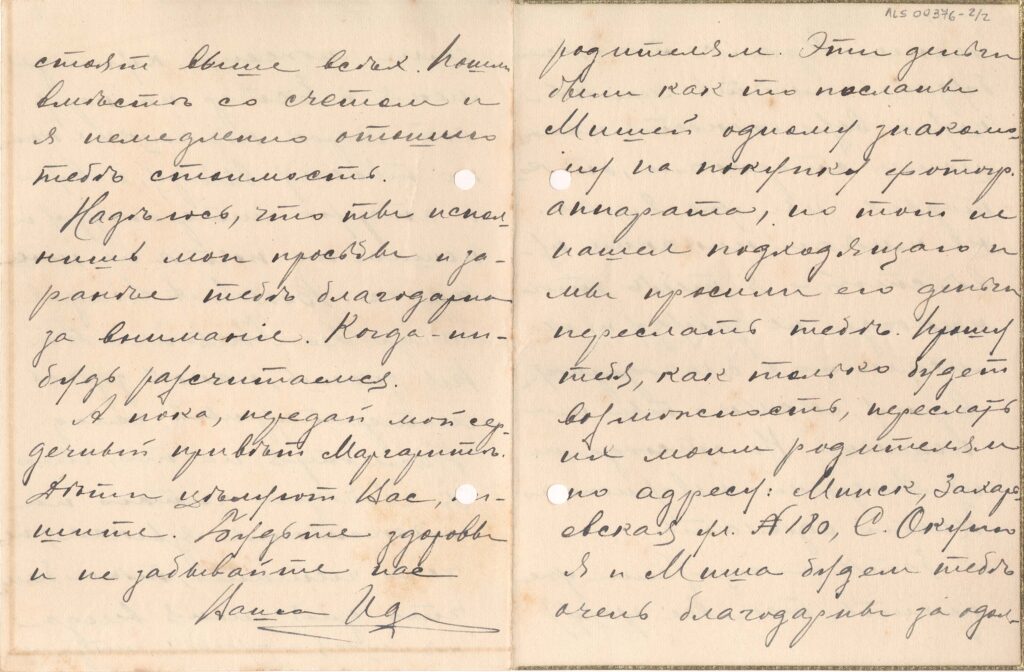 ALS 00376-2/2
стоят выше всѣх. Пошли
вмѣстѣ со счетом и
я немедленно отошлю
тебѣ стоимость.
Надѣюсь, что ты испол-
нишь мои просьбы и за-
ранѣе тебѣ благодарна
за вниманіе. Когда-ни-
будь расчитаемся.
А пока, передай мой сер-
дечный привѣт Маргаритѣ.
Дѣти цѣлуют Вас, пи-
шите. Будьте здоровы
и не забывайте нас
Ваша Ида
родителям. Эти деньги
были как то посланы
Мишей одному знакомо-
му на покупку фотогр.
аппарата, но тот не
нашел подходящаго и
мы просили его деньги
переслать тебѣ. Прошу
тебя, как только будет
возможность, переслать
их моим родителям
по адресу: Минск, Захарь-
евская ул. № 180, С. Окунь
я и Миша будем тебѣ
очень благодарны за одол-